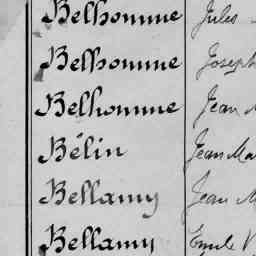 Belhomme Jules
Belhomme Joseph
Belhomme Jean M
Bélin Jean Ma
Bellamy Jean M
Bellamy Emile V